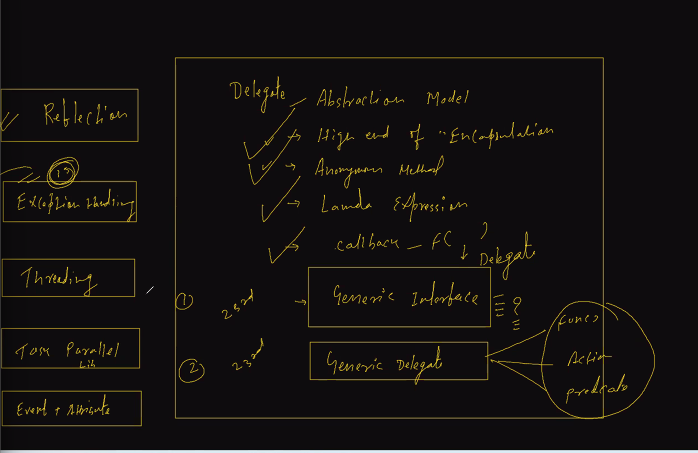 Reflection
15
Exception Handling
Threading
Task Parallel
Lib
Event + Attribute
Delegate
Abstraction Model
High end of "Encapsulation
Anonymous Method
Lamda Expression
callback - FC
Delegate
① 23rd → Generic Interface ?
② 23rd Generic Delegate
Funcs
Action
predicate